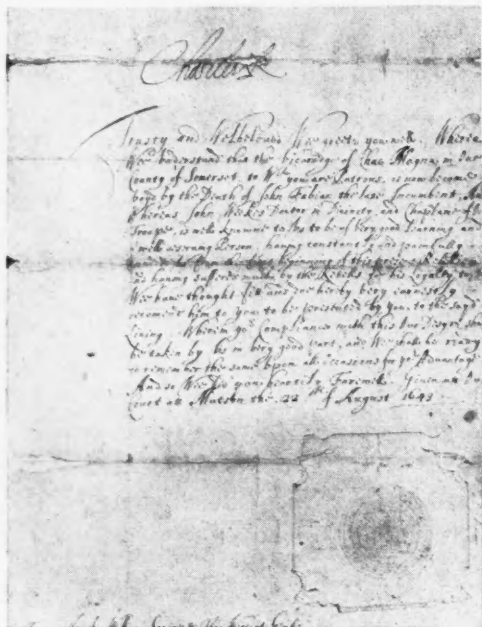 Charles R
Trusty and Welbeloved Wee greete you well. Whereas
Wee understand that the vicaridge of Chew Magna in our
County of Somerset, to wch you are Patrons, is now become
voyd by the Death of John Fabian the late Incumbent And
whereas John Weekes Doctor in Divinity and Chaplaine
Troope, is well knowne to Us to be of very good Learning and
well deserving Person, having constantly and painfully
beginning of this
as having suffered much by the Rebells for his Loyalty to
Wee have thought fitt and doe hereby very earnestly
recomend him to you to be presented by you to the sayd
Living. Wherein your Compliance with this Our Desyre shall
be taken by Us in very good part, and Wee shall be ready
to remember the same upon all occasions for yor Advantage
And so Wee bid you heartily Farewell. Given at Our
Court at Matson the 22th of August 1643